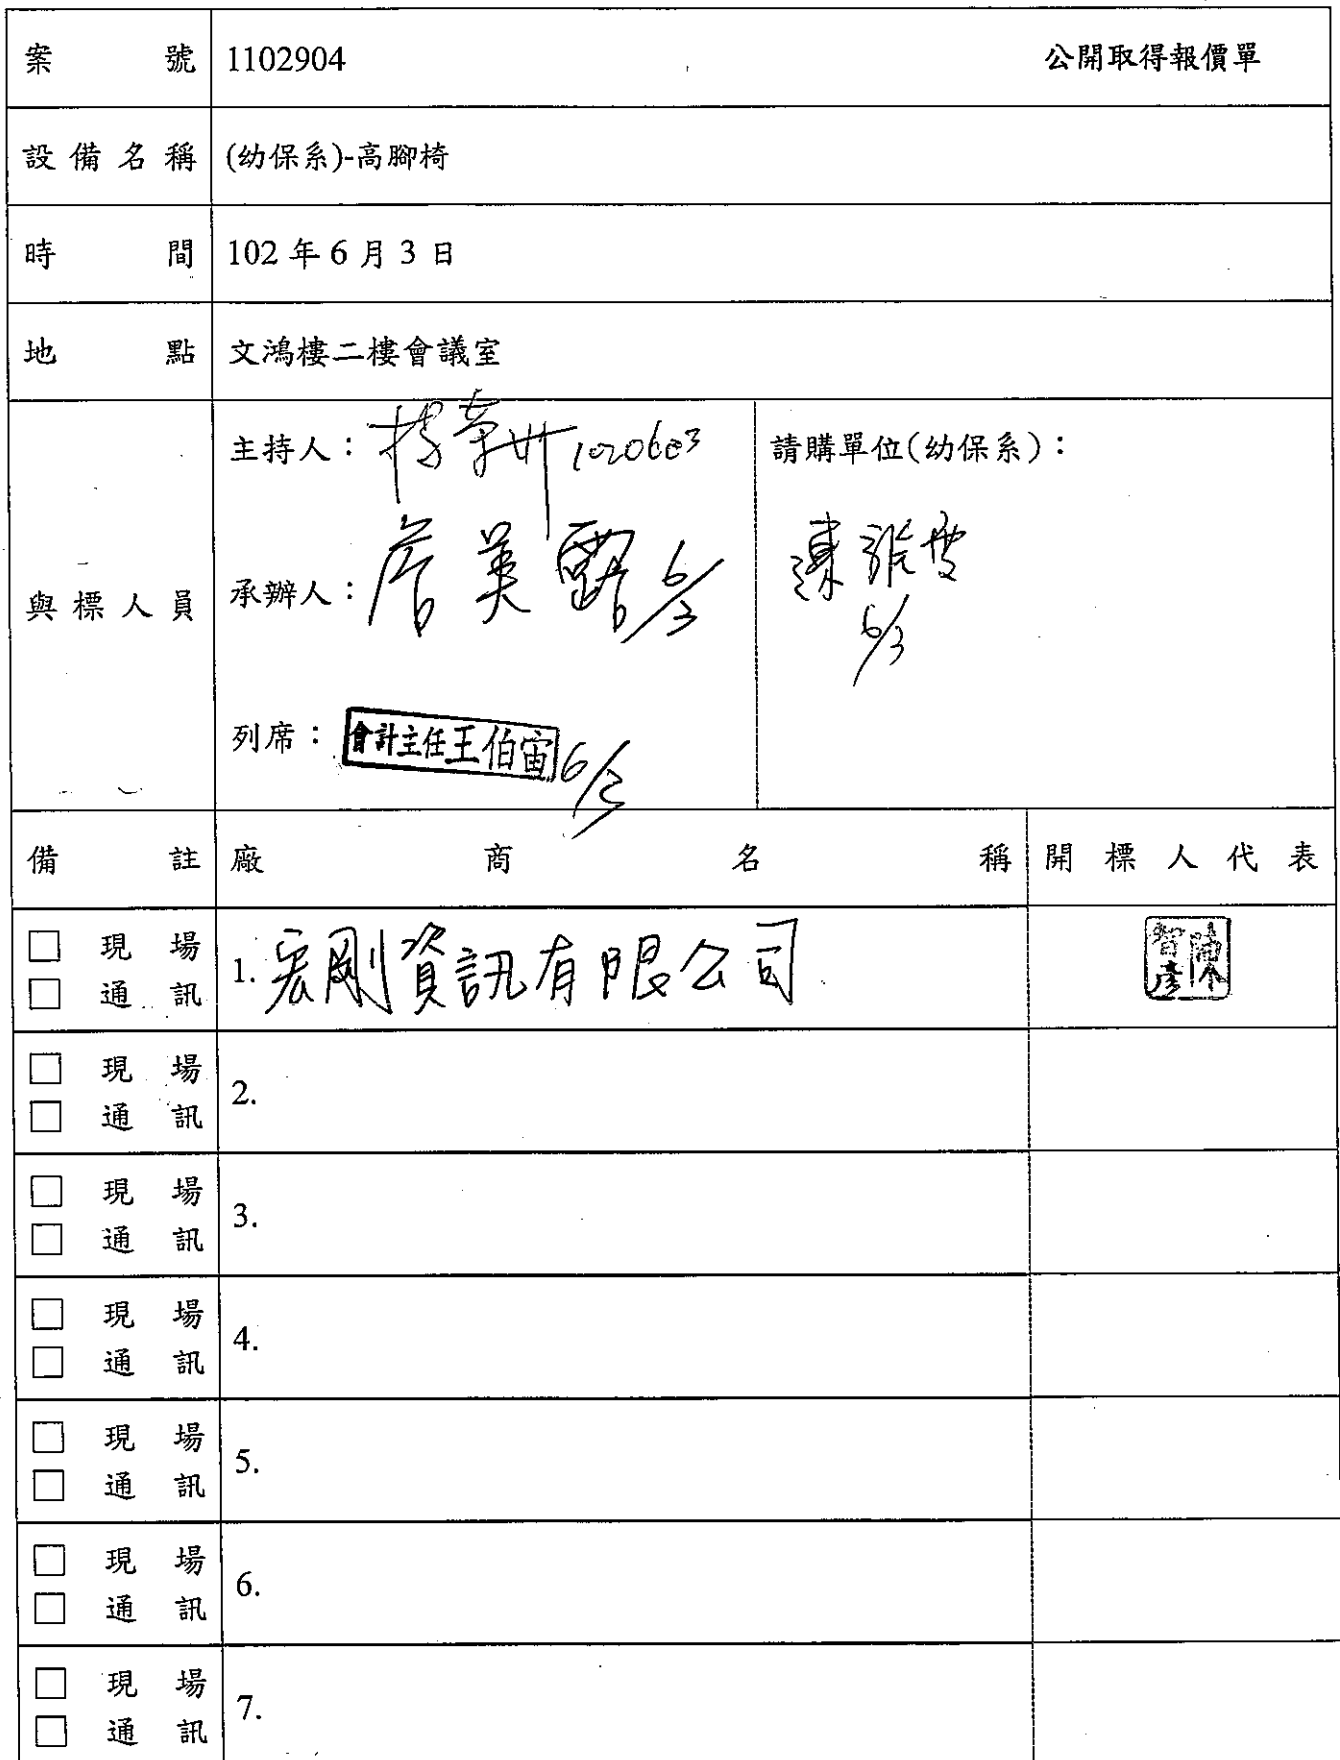 案號 1102904 公開取得報價單
設備名稱 (幼保系)-高腳椅
時間 102 年 6 月 3 日
地點 文鴻樓二樓會議室
與標人員
主持人： 1020603
承辦人：詹美露 6/3
列席：會計主任王伯宙 6/3
請購單位(幼保系)：
6/3
備註 廠商名稱 開標人代表
□ 現場
□ 通訊
1. 宏剛資訊有限公司
□ 現場
□ 通訊
2.
□ 現場
□ 通訊
3.
□ 現場
□ 通訊
4.
□ 現場
□ 通訊
5.
□ 現場
□ 通訊
6.
□ 現場
□ 通訊
7.